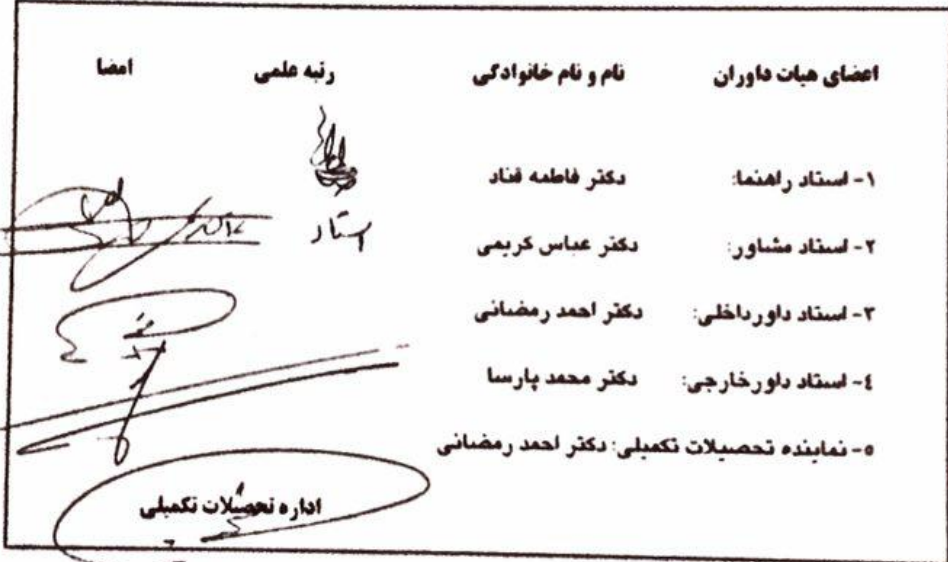 اعضای هیات داوران نام و نام خانوادگی رتبه علمی امضا
۱- استاد راهنما: دکتر فاطمه قناد
۲- استاد مشاور: دکتر عباس کریمی استاد
۳- استاد داورداخلی: دکتر احمد رمضانی
۴- استاد داورخارجی: دکتر محمد پارسا
۵- نماینده تحصیلات تکمیلی: دکتر احمد رمضانی
اداره تحصیلات تکمیلی